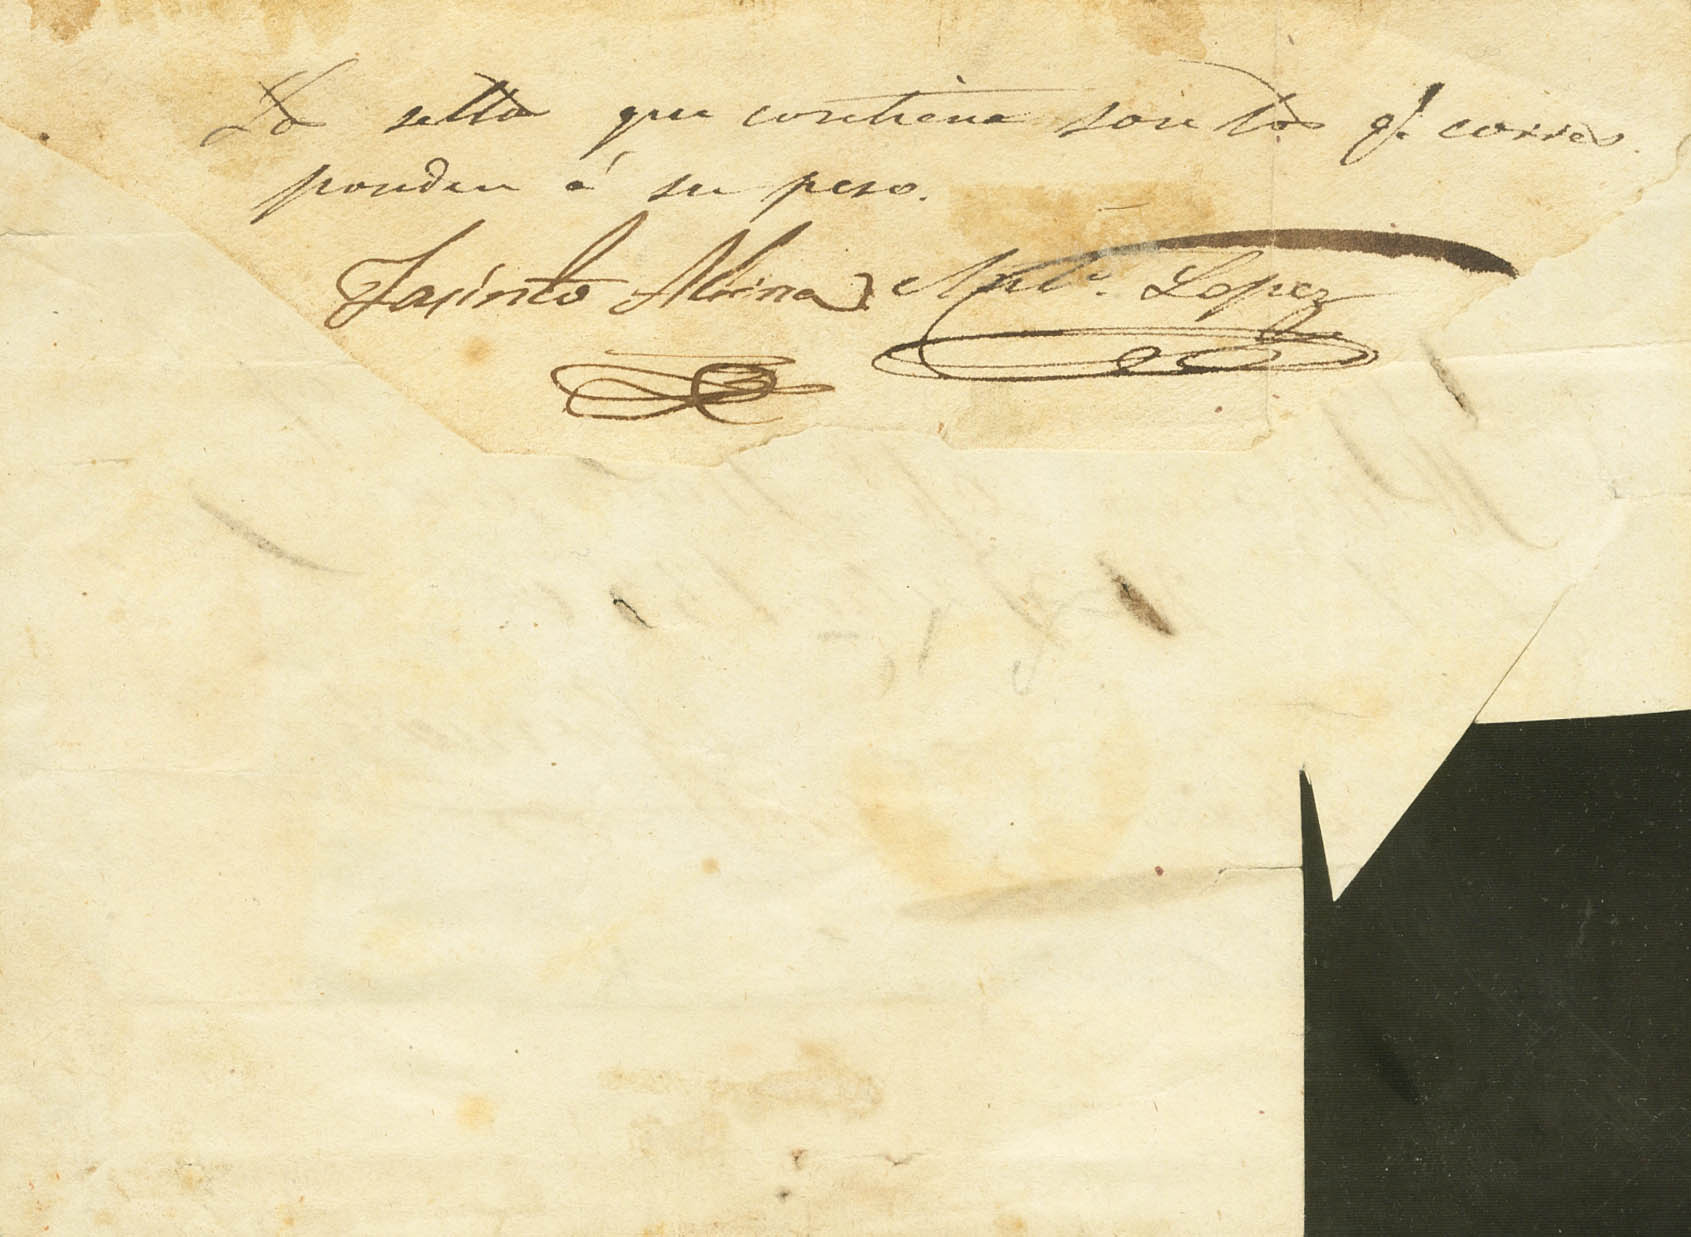 Los sellos que contiene son los q.e corres-
ponden á su peso.
Jacinto Mirna Ant.o Lopez